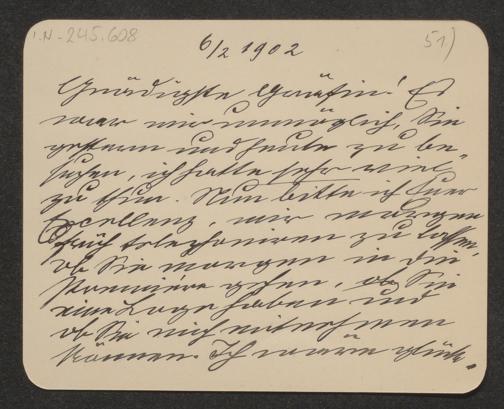 I.N. 245.608
51)
6/2 1902
Gnädigste Gräfin! Es
war mir unmöglich, Sie
gestern und heute zu be-
suchen, ich hatte sehr viel
zu thun. Nun bitte ich Euer
Excellenz, mir morgen
früh telephoniren zu lassen,
ob Sie morgen in die
Première gehen, ob Sie
eine Loge haben und
ob Sie mich mitnehmen
können. Ich wäre glück-